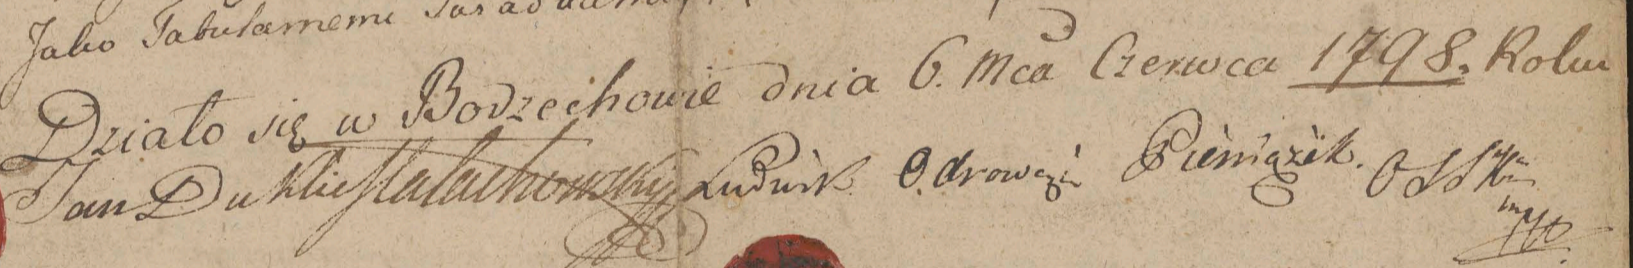 Jako Tabularnemu
Działo się w Bodzechowie dnia 6. Mca Czerwca 1798. Roku
Jan Duklie Małachowsky Ludwik Odrowąż Pieniążek.